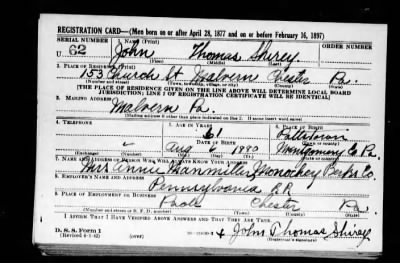 REGISTRATION CARD—(Men born on or after April 28, 1877 and on or before February 16, 1897)
SERIAL NUMBER 1. NAME (Print) ORDER NUMBER
U 62 John Thomas Shirey
(First) (Middle) (Last)
2. PLACE OF RESIDENCE (Print)
153 Church St Malvern Chester Pa.
(Number and street) (Town, township, village, or city) (County) (State)
[THE PLACE OF RESIDENCE GIVEN ON THE LINE ABOVE WILL DETERMINE LOCAL BOARD
JURISDICTION; LINE 2 OF REGISTRATION CERTIFICATE WILL BE IDENTICAL]
3. MAILING ADDRESS
Malvern Pa.
[Mailing address if other than place indicated on line 2. If same insert word same]
4. TELEPHONE 5. AGE IN YEARS 6. PLACE OF BIRTH
61 Pottstown
DATE OF BIRTH (Town or county)
Aug 1880 Montgomery Co Pa.
(Exchange) (Number) (Mo.) (Day) (Yr.) (State or country)
7. NAME AND ADDRESS OF PERSON WHO WILL ALWAYS KNOW YOUR ADDRESS
Mrs Annie Manmiller Monockey Berks Co.
8. EMPLOYER'S NAME AND ADDRESS
Pennsylvania R.R
9. PLACE OF EMPLOYMENT OR BUSINESS
Paoli Chester Pa
(Number and street or R. F. D. number) (Town) (County) (State)
I AFFIRM THAT I HAVE VERIFIED ABOVE ANSWERS AND THAT THEY ARE TRUE.
D. S. S. Form 1
(Revised 4-1-42) (over) x John Thomas Shirey
(Registrant's signature)